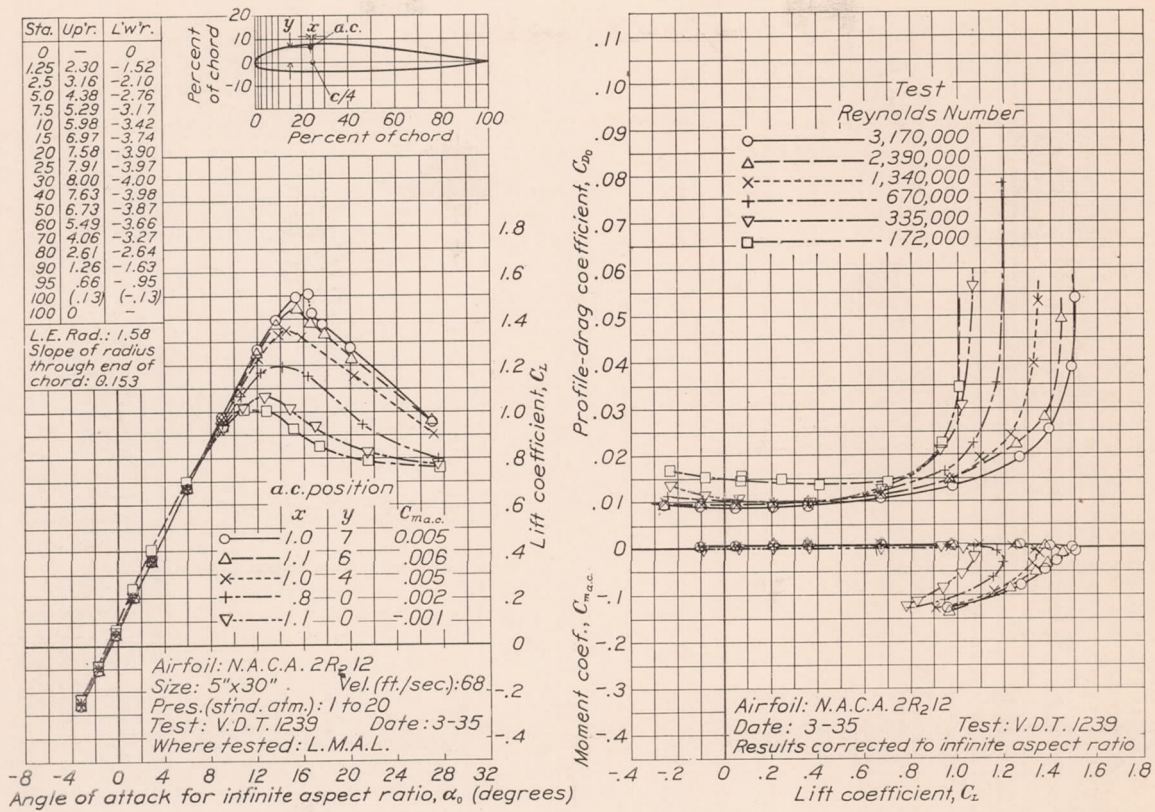 Sta. Up'r. L'w'r.
0 — 0
1.25 2.30 -1.52
2.5 3.16 -2.10
5.0 4.38 -2.76
7.5 5.29 -3.17
10 5.98 -3.42
15 6.97 -3.74
20 7.58 -3.90
25 7.91 -3.97
30 8.00 -4.00
40 7.63 -3.98
50 6.73 -3.87
60 5.49 -3.66
70 4.06 -3.27
80 2.61 -2.64
90 1.26 -1.63
95 .66 - .95
100 (.13) (-.13)
100 0 —
L.E. Rad.: 1.58
Slope of radius
through end of
chord: 0.153
Percent
of chord
20
10
0
-10
y x a.c.
c/4
0 20 40 60 80 100
Percent of chord
1.8
1.6
1.4
1.2
1.0
.8
.6
.4
.2
0
-.2
-.4
Lift coefficient, C_L
a.c. position
x y C_m a.c.
1.0 7 0.005
1.1 6 .006
1.0 4 .005
.8 0 .002
1.1 0 -.001
Airfoil: N.A.C.A. 2R₂12
Size: 5"x30" Vel.(ft./sec.):68
Pres.(st'nd. atm.): 1 to 20
Test: V.D.T. 1239 Date: 3-35
Where tested: L.M.A.L.
-8 -4 0 4 8 12 16 20 24 28 32
Angle of attack for infinite aspect ratio, α₀ (degrees)
.11
.10
.09
.08
.07
.06
.05
.04
.03
.02
.01
0
-.1
-.2
-.3
-.4
Profile-drag coefficient, C_D₀
Moment coef., C_m a.c.
Test
Reynolds Number
3,170,000
2,390,000
1,340,000
670,000
335,000
172,000
Airfoil: N.A.C.A. 2R₂12
Date: 3-35 Test: V.D.T. 1239
Results corrected to infinite aspect ratio
-.4 -.2 0 .2 .4 .6 .8 1.0 1.2 1.4 1.6 1.8
Lift coefficient, C_L